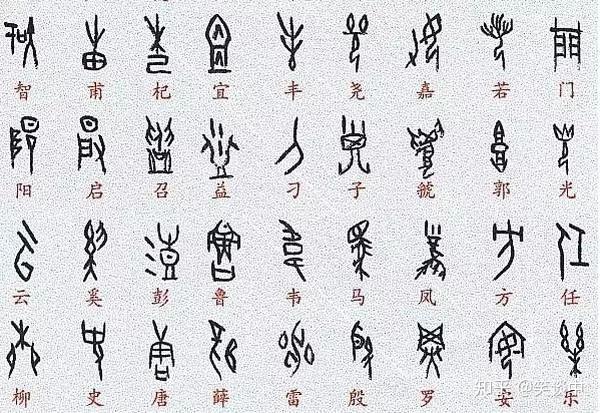 智 甫 杞 宜 丰 尧 嘉 若 门
阳 启 召 益 刁 子 虢 郭 光
云 奚 彭 鲁 韦 马 凤 方 任
柳 史 唐 薛 雷 殷 罗 安 乐
知乎